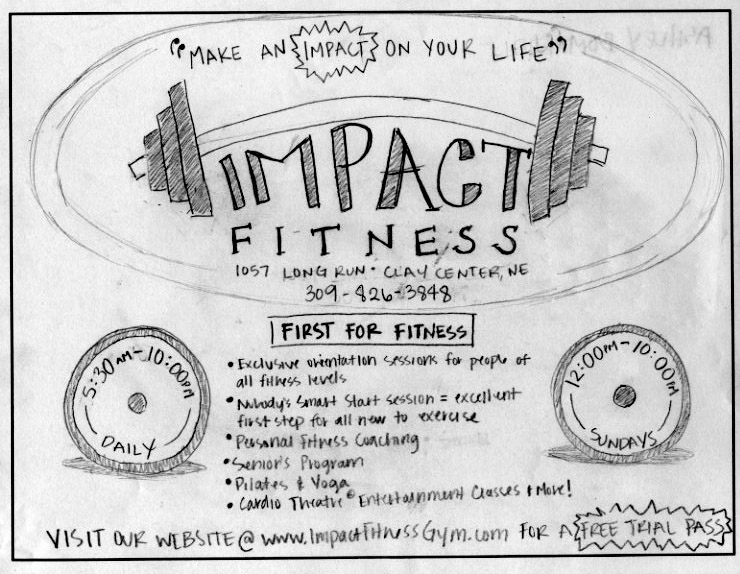 "MAKE AN IMPACT ON YOUR LIFE"
IMPACT
FITNESS
1057 LONG RUN · CLAY CENTER, NE
309-826-3848
FIRST FOR FITNESS
• Exclusive orientation sessions for people of
all fitness levels
• Nubody's Smart Start session = excellent
first step for all new to exercise
• Personal Fitness Coaching
• Senior's Program
• Pilates & Yoga
• Cardio Theatre® Entertainment Classes & More!
5:30AM-10:00PM
DAILY
12:00PM-10:00PM
SUNDAYS
VISIT OUR WEBSITE @ www.ImpactFitnessGym.com FOR A FREE TRIAL PASS